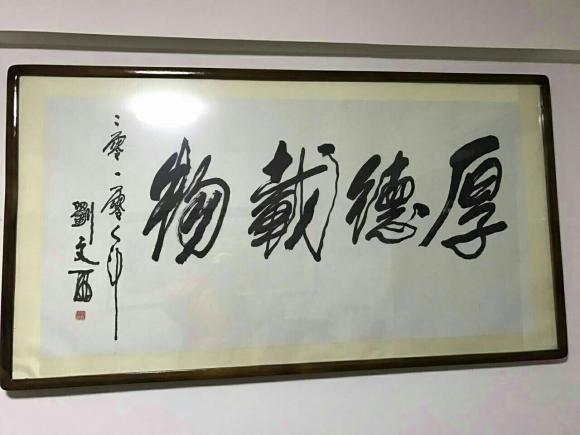 厚德載物
二零一零年
劉文西